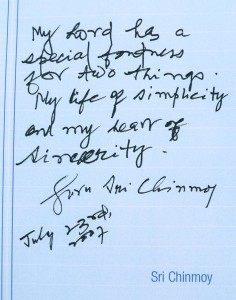 My Lord has a
special fondness
for two things.
My life of simplicity
and my heart of
sincerity.
Sri Chinmoy
July 23rd,
2007
Sri Chinmoy